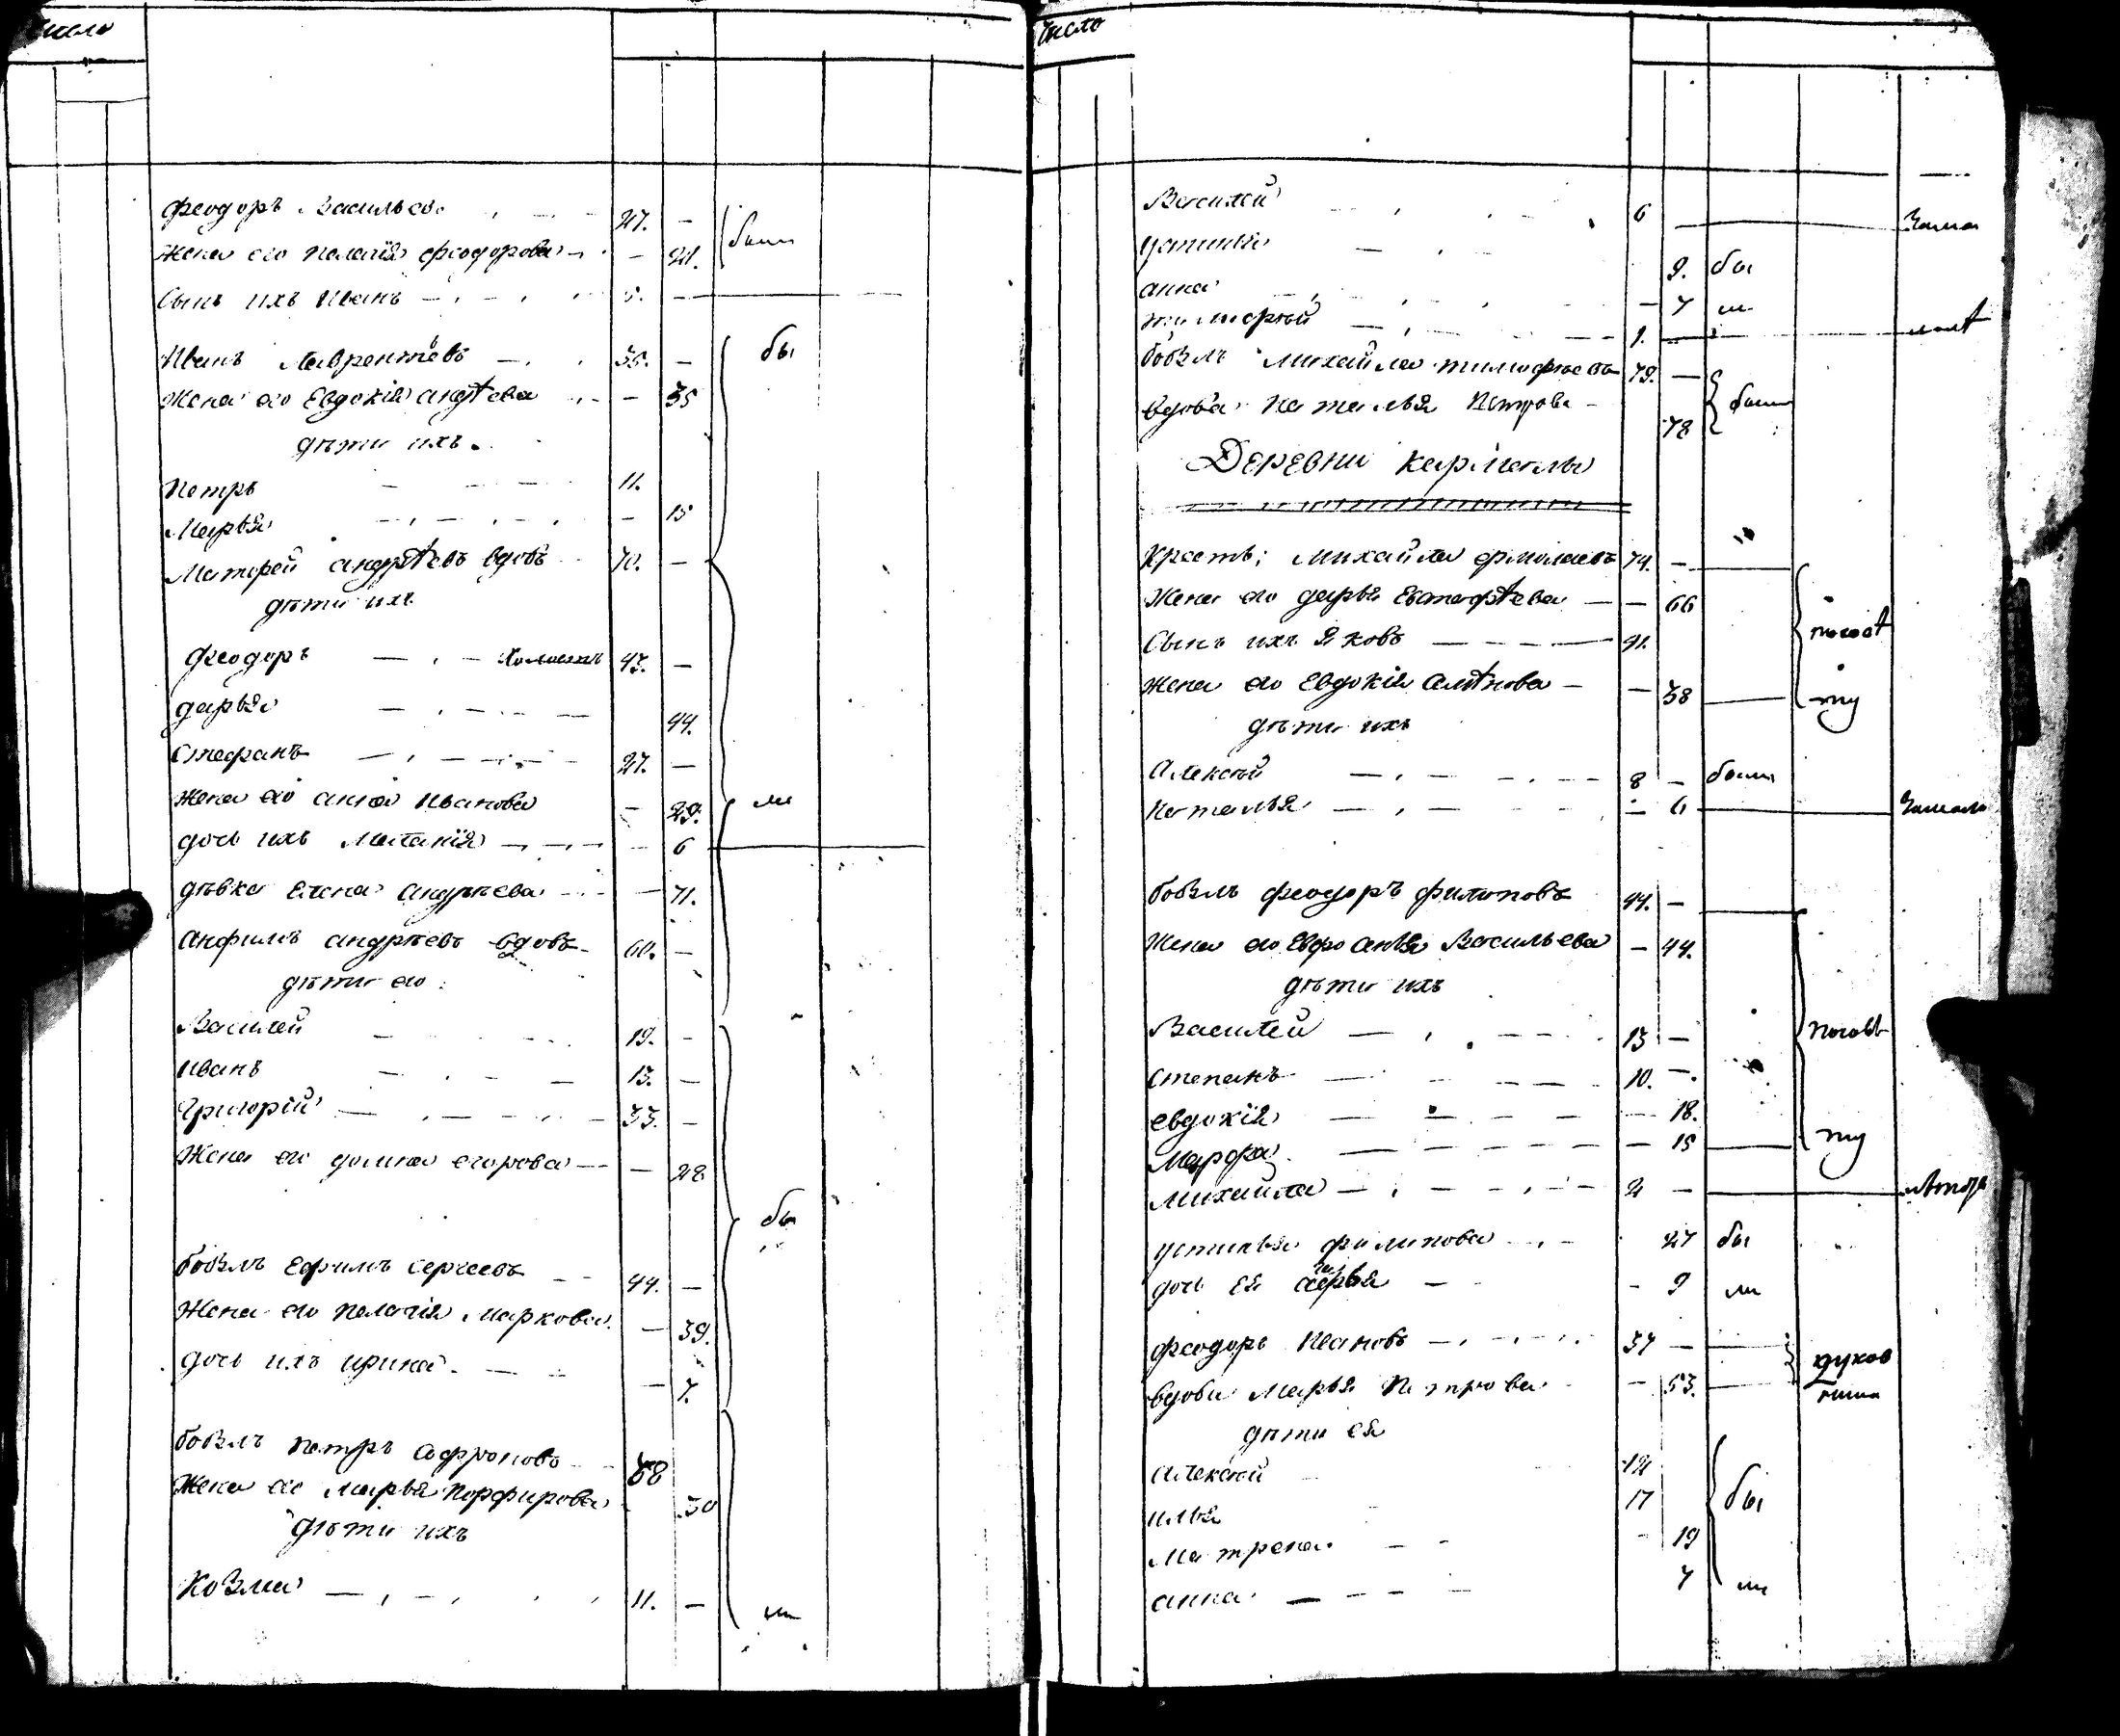 число
Феодоръ Васильевъ 27. -
Жена его Пелагія Феодорова - 21. были
Сынъ ихъ Иванъ 5. -
Иванъ Лаврентьевъ 35. - бы
Жена его Евдокія Андрѣева - 35
дѣти ихъ.
Петръ 11.
Марья - 15
Матфей андрѣевъ вдовъ 70. -
дѣти ихъ
Феодоръ холостъ 43. -
дарья 44.
Стефанъ 27. -
Жена его анна Иванова - 29. ли
дочь ихъ Меланія 6
дѣвка Елена Андрѣева - 71.
Анфимъ андрѣевъ вдовъ 60. -
дѣти его:
Василей 19. -
Иванъ 13. -
Григорій 33. -
Жена его домна егорова - 28
бы
бобыль Ефимъ Сергеевъ 44. -
Жена его Пелагія Маркова - 39.
дочь ихъ ирина - 7.
бобыль Петръ Софроновъ 38
Жена его Марья Порфирова 30
дѣти ихъ
Козма 11. -
ли
число
Василей 6
устинья 9. бы
анна - 7 ли
тимофей 1.
бобыль Михайла тимофѣевъ 79. -
вдова Наталья Петрова 78 были
Деревни Кармалы
Кресть: Михайла ермолаевъ 74. -
Жена его дарья Евстафѣева - 66
Сынъ ихъ Яковъ 41.
Жена его Евдокія Семѣнова - 38
ту
дѣти ихъ
Алексѣй 8 - были
Наталья - 6
бобыль феодоръ филиповъ 44. -
Жена его Евфросинья Васильева - 44.
дѣти ихъ
Василей 13 -
степанъ 10. -
евдокія 18.
Марфа - 15 ту
Михайла 2 -
устинья филипова 27 бы
дочь ея дарья - 9 ли
феодоръ Ивановъ 37 -
вдова Марья Петрова - 53.
дѣти ея
Алексѣй
илья 17 бы
Матрена - 19
анна 7 ли